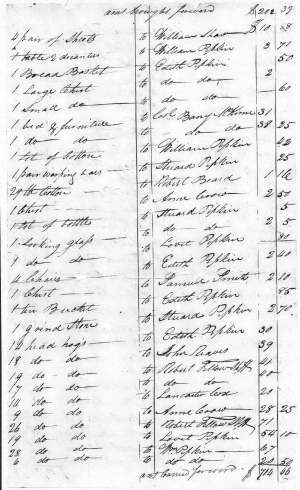 amt brought forward $ 202 39
4 pair of Sheets to William Shaw $ 10 8
1 table & decanters to William Pipkin 3 71
1 Bread Basket to Edith Pipkin 50
1 Large Chist do do 2
1 Small do to do do 60
1 bed & furniture to Col. Benj 31
1 do do to do do 38 25
1 lot of Cotton to William Pipkin 42
1 pair working bars to Stuard Pipkin 25
to Robert Beard 1 16
1 Chist to Anne Crow 2 50
1 lot of bottles to Stuard Pipkin 5
1 Looking glass to do do 2 5
1 do do to Lovit Pipkin
4 Chairs to Edith Pipkin 2 40
1 Chist to Samuel 2 10
1 tin Bucket to Edith Pipkin
1 grind Stone to Stuard Pipkin 2 70
12 head hogs to Edith Pipkin 30
18 do do to John Reaves 39
19 do do to Robert Fellow 41
17 do do to do do 40
14 do do to Lancaster Cox 20
9 do do to Anne Crow 28 25
26 do do to Robert Fellow 71
19 do do to Lovit Pipkin 54 10
28 do do to Wm Pipkin 67
6 do do to do do 20 50
amt carried forward $ 714 66